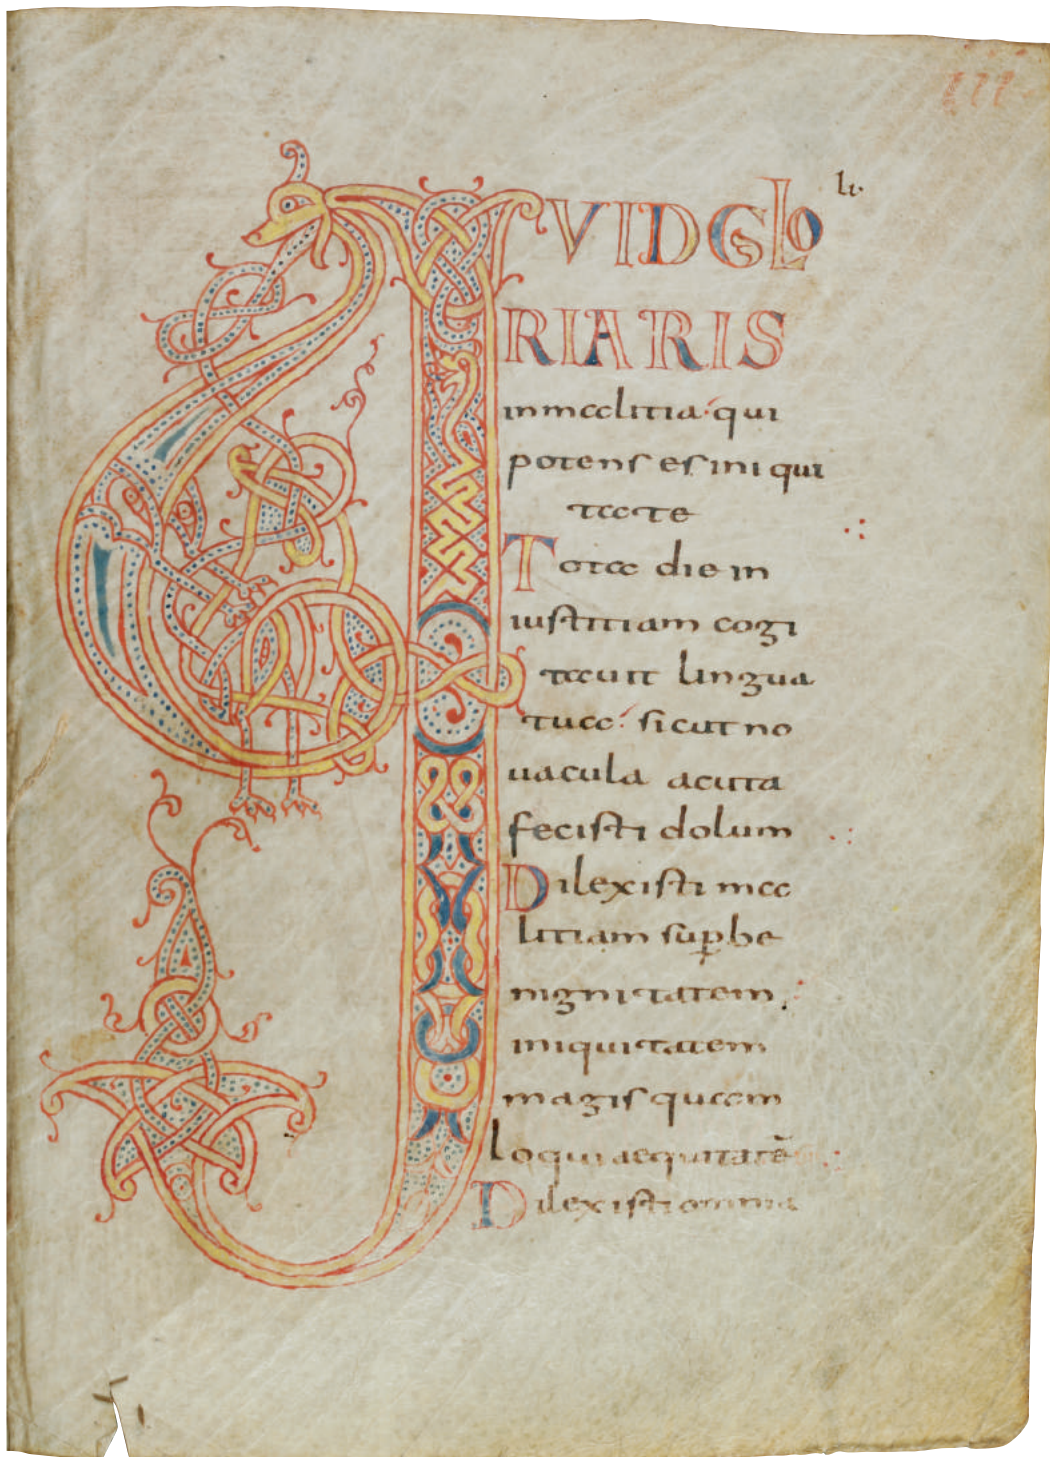 li.
QVID GLO
RIARIS
in malitia· qui
potens es iniqui
tate
Tota die in
iustitiam cogi
tauit lingua
tua· sicut no
uacula acuta
fecisti dolum
Dilexisti ma
litiam sup be
nignitatem
iniquitatem
magis quam
loqui aequitatē
Dilexisti omnia